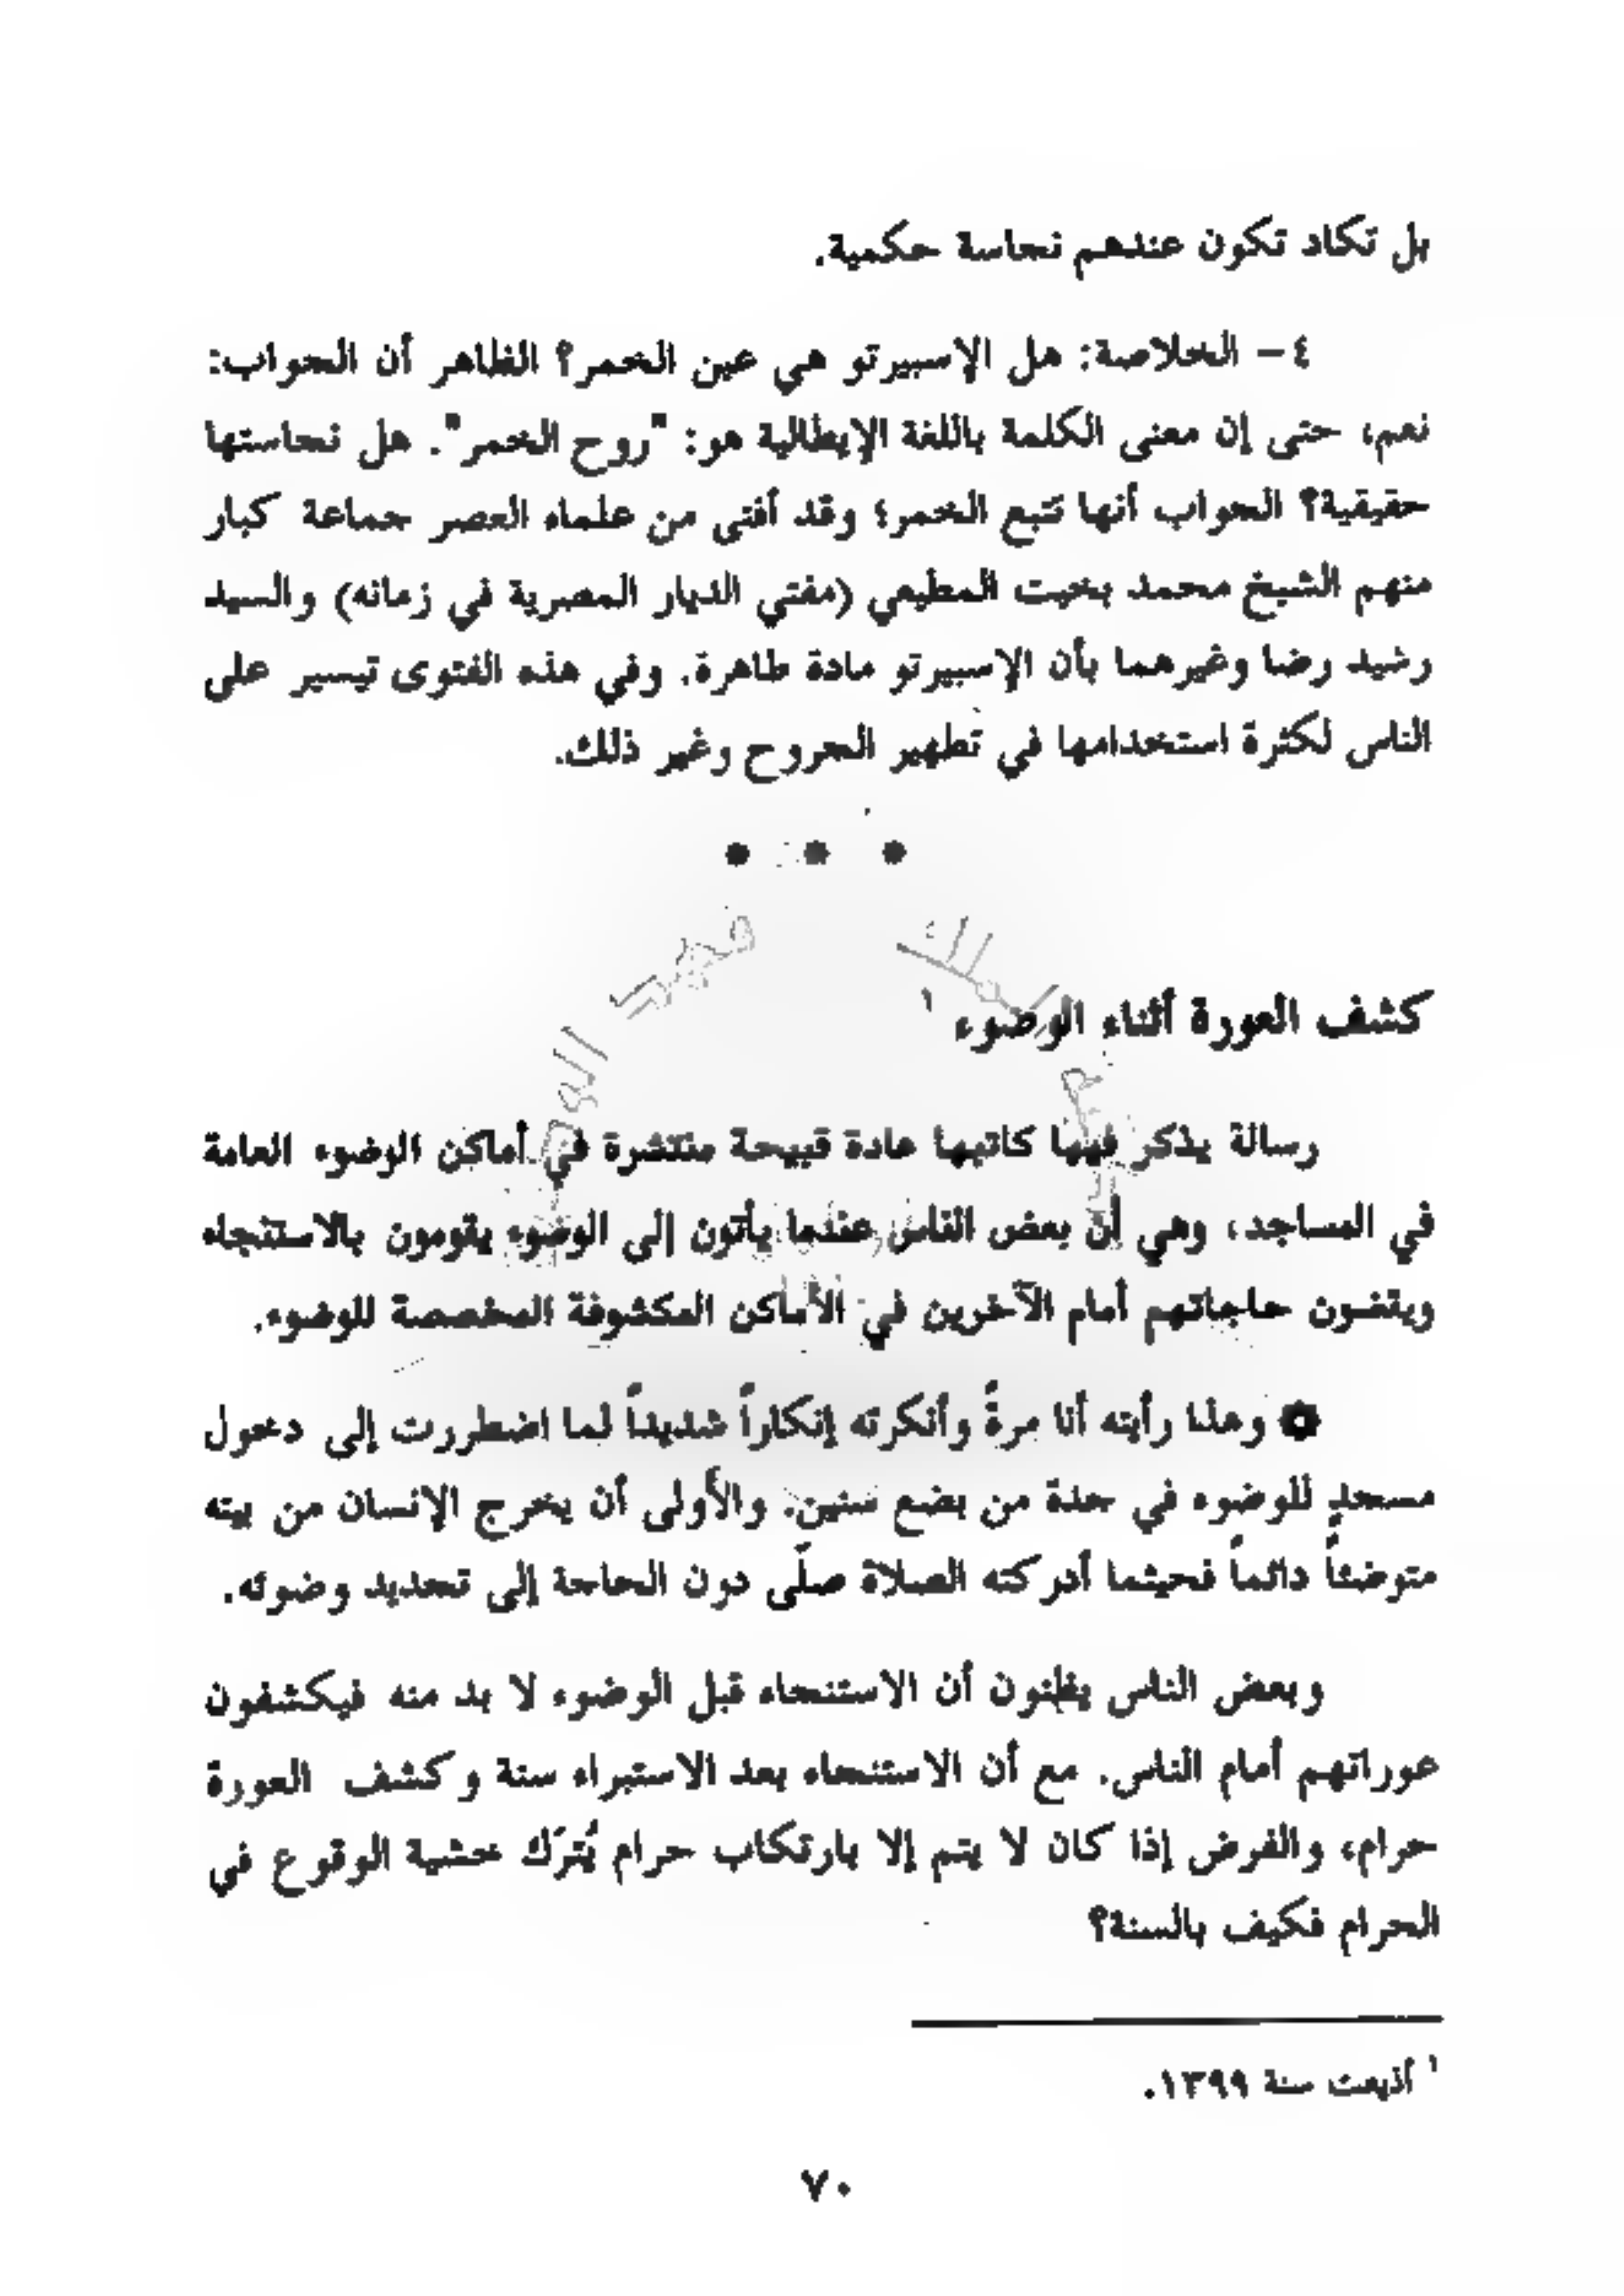 بل تكاد تكون عندهم نجاسة حكمية.
٤- الخلاصة: هل الإسبيرتو هي عين الخمر؟ الظاهر أن الجواب:
نعم، حتى إن معنى الكلمة باللغة الإيطالية هو: "روح الخمر". هل نجاستها
حقيقية؟ الجواب أنها تتبع الخمر؛ وقد أفتى من علماء العصر جماعة كبار
منهم الشيخ محمد بخيت المطيعي (مفتي الديار المصرية في زمانه) والسيد
رشيد رضا وغيرهما بأن الإسبيرتو مادة طاهرة. وفي هذه الفتوى تيسير على
الناس لكثرة استخدامها في تطهير الجروح وغير ذلك.
• • •
كشف العورة أثناء الوضوء ١
رسالة يذكر فيها كاتبها عادة قبيحة منتشرة في أماكن الوضوء العامة
في المساجد، وهي أن بعض الناس عندما يأتون إلى الوضوء يقومون بالاستنجاء
ويقضون حاجاتهم أمام الآخرين في الأماكن المكشوفة المخصصة للوضوء.
وهذا رأيته أنا مرةً وأنكرته إنكاراً شديداً لما اضطررت إلى دخول
مسجدٍ للوضوء في جدة من بضع سنين. والأَولى أن يخرج الإنسان من بيته
متوضئاً دائماً فحيثما أدركته الصلاة صلّى دون الحاجة إلى تجديد وضوئه.
وبعض الناس يظنون أن الاستنجاء قبل الوضوء لا بد منه فيكشفون
عوراتهم أمام الناس. مع أن الاستنجاء بعد الاستبراء سنة وكشف العورة
حرام، والفرض إذا كان لا يتم إلا بارتكاب حرام يُترَك خشية الوقوع في
الحرام فكيف بالسنة؟
١ أذيعت سنة ١٣٩٩.
٧٠